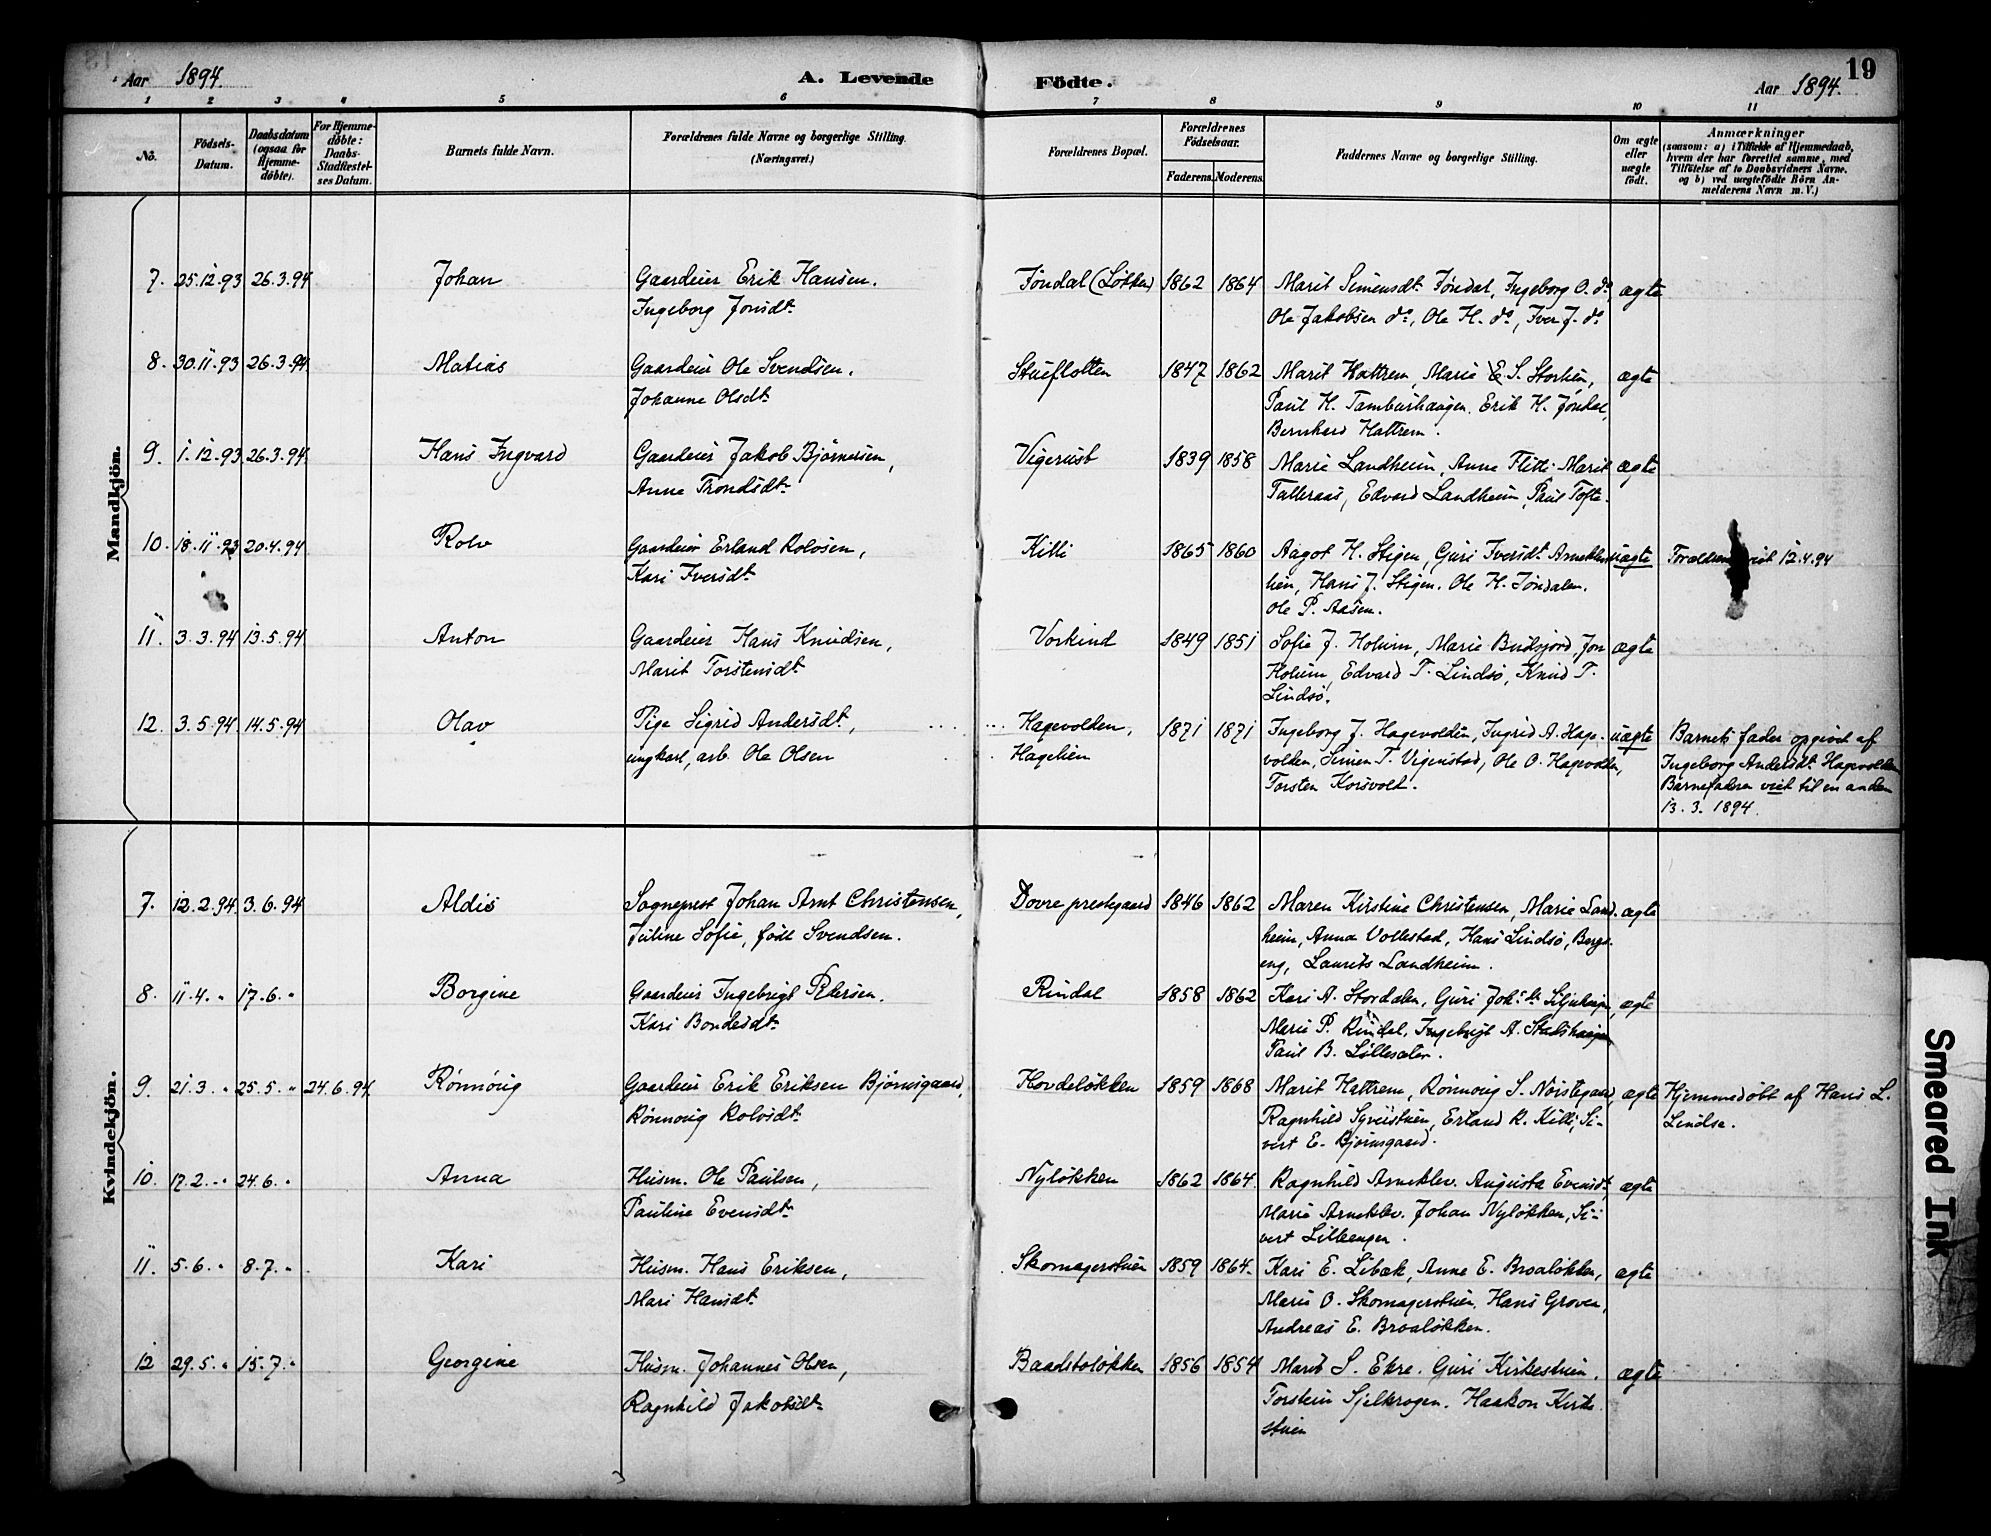 Aar 1894. A. Levende Födte. Aar 1894. 19
1 2 3 4 5 6 7 8 9 10 11
No. Födsels-Datum. Daabsdatum (ogsaa for Hjemme-döbte). For Hjemme-döbte: Daabs-Stadfæstel-ses Datum. Barnets fulde Navn. Forældrenes fulde Navne og borgerlige Stilling. (Næringsvei.) Forældrenes Bopæl. Forældrenes Födselsaar. Faderens. Moderens. Faddernes Navne og borgerlige Stilling. Om ægte eller uægte födt. Anmærkninger (saasom: a) i Tilfælde af Hjemmedaab, hvem der har forrettet samme, med Tilföielse af to Daabsvidners Navne. og b) ved uægtefödte Börn An-melderens Navn m. V.)
Mandkjön.
7. 25.12.93 26.3.94 Johan Gaardeier Erik Hansen. Jøndal (Løkken) 1862 1864 Marit Simensdt. Jøndal, Ingeborg O. do, ægte
Ingeborg Jonsdt. Ole Jakobsen do, Ole H. do, Iver J. do
8. 30.11.93 26.3.94 Matias Gaardeier Ole Svendsen, Stueflotten 1847 1862 Marit Hattrem, Marie E. S. Storlien, ægte
Johanne Olsdt. Paul H. Tamburhaugen. Erik H. Jøndal,
Bernhard Hattrem.
9. 1.12.93 26.3.94 Hans Ingvard Gaardeier Jakob Bjørnersen, Vigerust 1839 1858 Marie Landheim, Anne Flitti. Marit ægte
Anne Trondsdt. Talleraas, Edvard Landheim, Paul Tofte.
10. 18.11.93 20.4.94 Rolv Gaardeier Erland Rolvsen, Killi 1865 1860 Aagot H. Stigen, Guri Iversdt. Arneklev- uægte Forældrene viet 12.4.94
Kari Iversdt. lien, Hans J. Stigen. Ole H. Jøndalen.
Ole P. Aasen.
11. 3.3.94 13.5.94 Anton Gaardeier Hans Knudsen, Vorkind 1849 1851 Sofie J. Holum, Marie Budsjord, Jon ægte
Marit Torstensdt. Holum, Edvard T. Lindsø, Knud T.
Lindsø.
12. 3.5.94 14.5.94 Olav Pige Sigrid Andersdt., Hagevolden, 1871 1871 Ingeborg J. Hagevolden, Ingrid A. Hage- uægte Barnets fader opgivet af
ungkarl, arb. Ole Olsen Hagelien volden, Simen T. Vigenstad, Ole O. Hagevolden, Ingeborg Andersdt. Hagevolden
Torsten Korsvold. Barnefaderen viet til en anden
13.3.1894.
Kvindekjön.
7. 12.2.94 3.6.94 Aldis Sogneprest Johan Arnt Christensen, Dovre prestegaard 1846 1862 Maren Kirstine Christensen, Marie Land- ægte
Juline Sofie, født Svendsen. heim, Anna Vollestad, Hans Lindsø, Bergs-
eng, Laurits Landheim.
8. 11.4. " 17.6. " Borgine Gaardeier Ingebrigt Petersen. Rindal 1858 1862 Kari A. Stordalen, Guri Johsdt. , ægte
Kari Bondesdt. Marie P. Rindal, Ingebrigt A.
Paul B. Lillesæter.
9. 21.3. " 25.5. " 24.6.94 Rønnøug Gaardeier Erik Eriksen Bjørnsgaard, Hovdeløkken 1859 1868 Marit Hattrem, Rønnoug S. Norstegaard, ægte Hjemmedøbt af Hans L.
Rønnoug Rolvsdt. Ragnhild Syverstuen, Erland R. Killi, Si- Lindsø.
vert E. Bjørnsgaard.
10. 17.2. " 24.6. " Anna Husm. Ole Paulsen, Nyløkken 1862 1864. Ragnhild Arneklev. Augusta Evensdt., ægte
Pauline Evensdt. Marie Arneklev. Johan Nyløkken, Si-
vert Lillengen.
11. 5.6. " 8.7. " Kari Husm. Hans Eriksen, Skomagerstuen 1859 1864. Kari E. Libæk, Anne E. Broaløkken, ægte
Mari Hansdt. Marie O. Skomagerstuen, Hans Groven,
Andreas E. Broaløkken.
12 29.5. " 15.7. " Georgine Husm. Johannes Olsen, Baadstoløkken 1856 1854 Marit S. Ekre. Guri Kirkestuen. ægte
Ragnhild Jakobsdt. Torstein Sjelkrogen. Haakon Kirke-
stuen
Smeared Ink